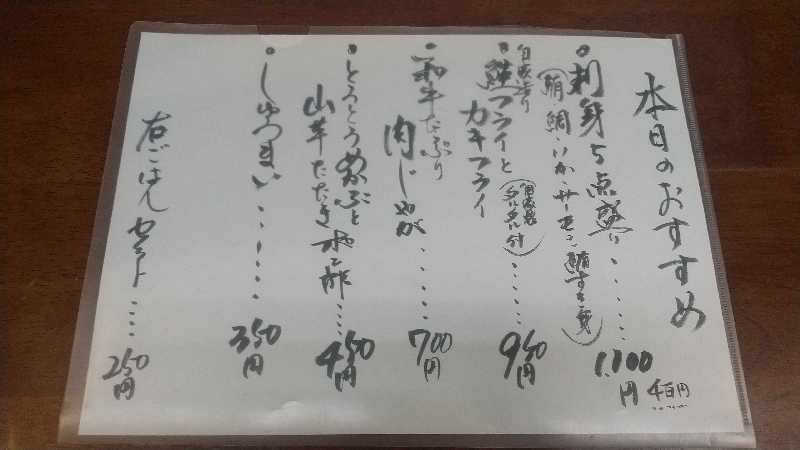 本日のおすすめ
刺身5点盛り・・・・・・1,100円
(鮪・鯛・いか・サーモン・鮪すき身)
4百円
自家製
鮭フライと
カキフライ
(自家製タルタル付)・・・・・950円
和牛たっぷり
肉じゃが・・・・・700円
とろとろめかぶと
山芋たたきポン酢・・・・450円
しゅうまい・・・・・・350円
右ごはんセット・・・・250円